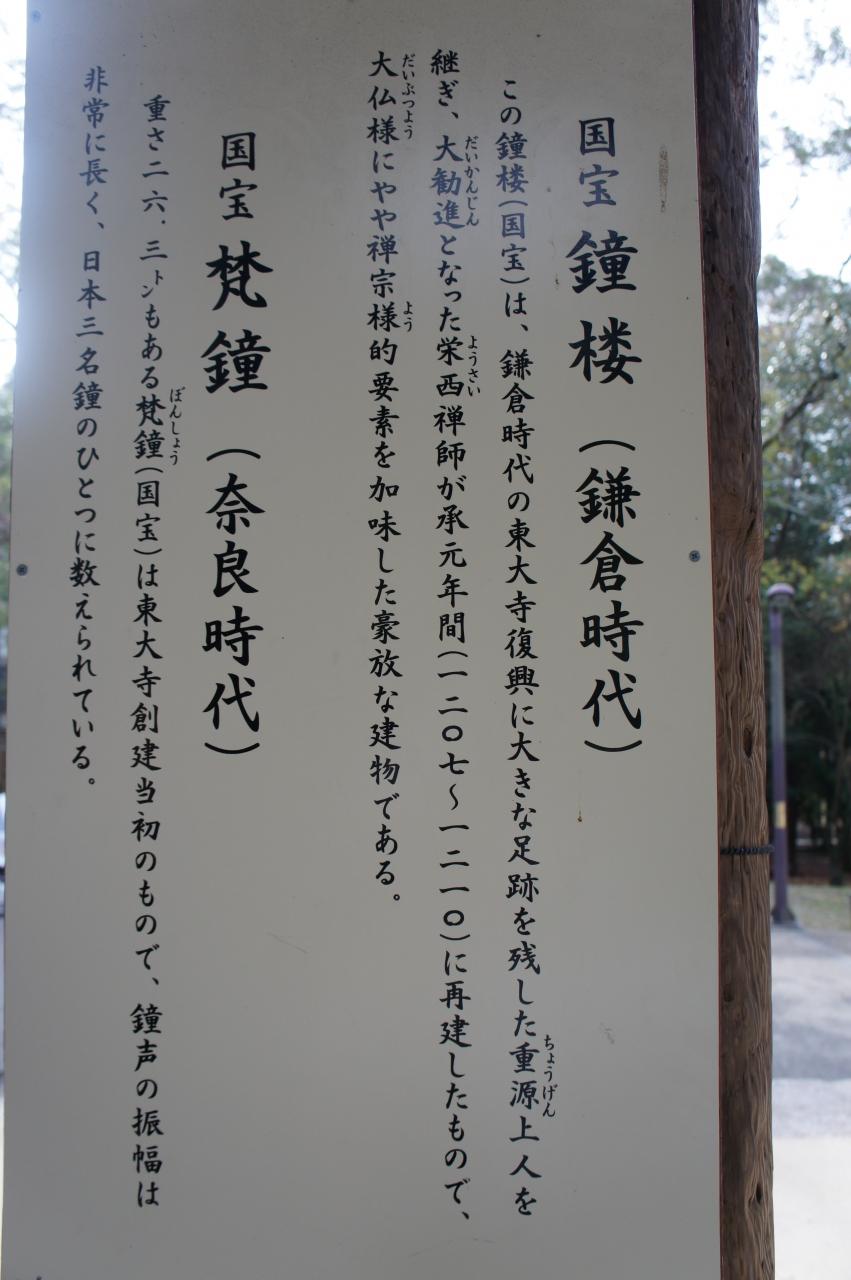 国宝 鐘楼（鎌倉時代）
この鐘楼（国宝）は、鎌倉時代の東大寺復興に大きな足跡を残した重源上人を
継ぎ、大勧進となった栄西禅師が承元年間（一二〇七〜一二一〇）に再建したもので、
大仏様にやや禅宗様的要素を加味した豪放な建物である。
国宝 梵鐘（奈良時代）
重さ二六．三㌧もある梵鐘（国宝）は東大寺創建当初のもので、鐘声の振幅は
非常に長く、日本三名鐘のひとつに数えられている。
ちょうげん
だいかんじん
ようさい
だいぶつよう
よう
ぼんしょう